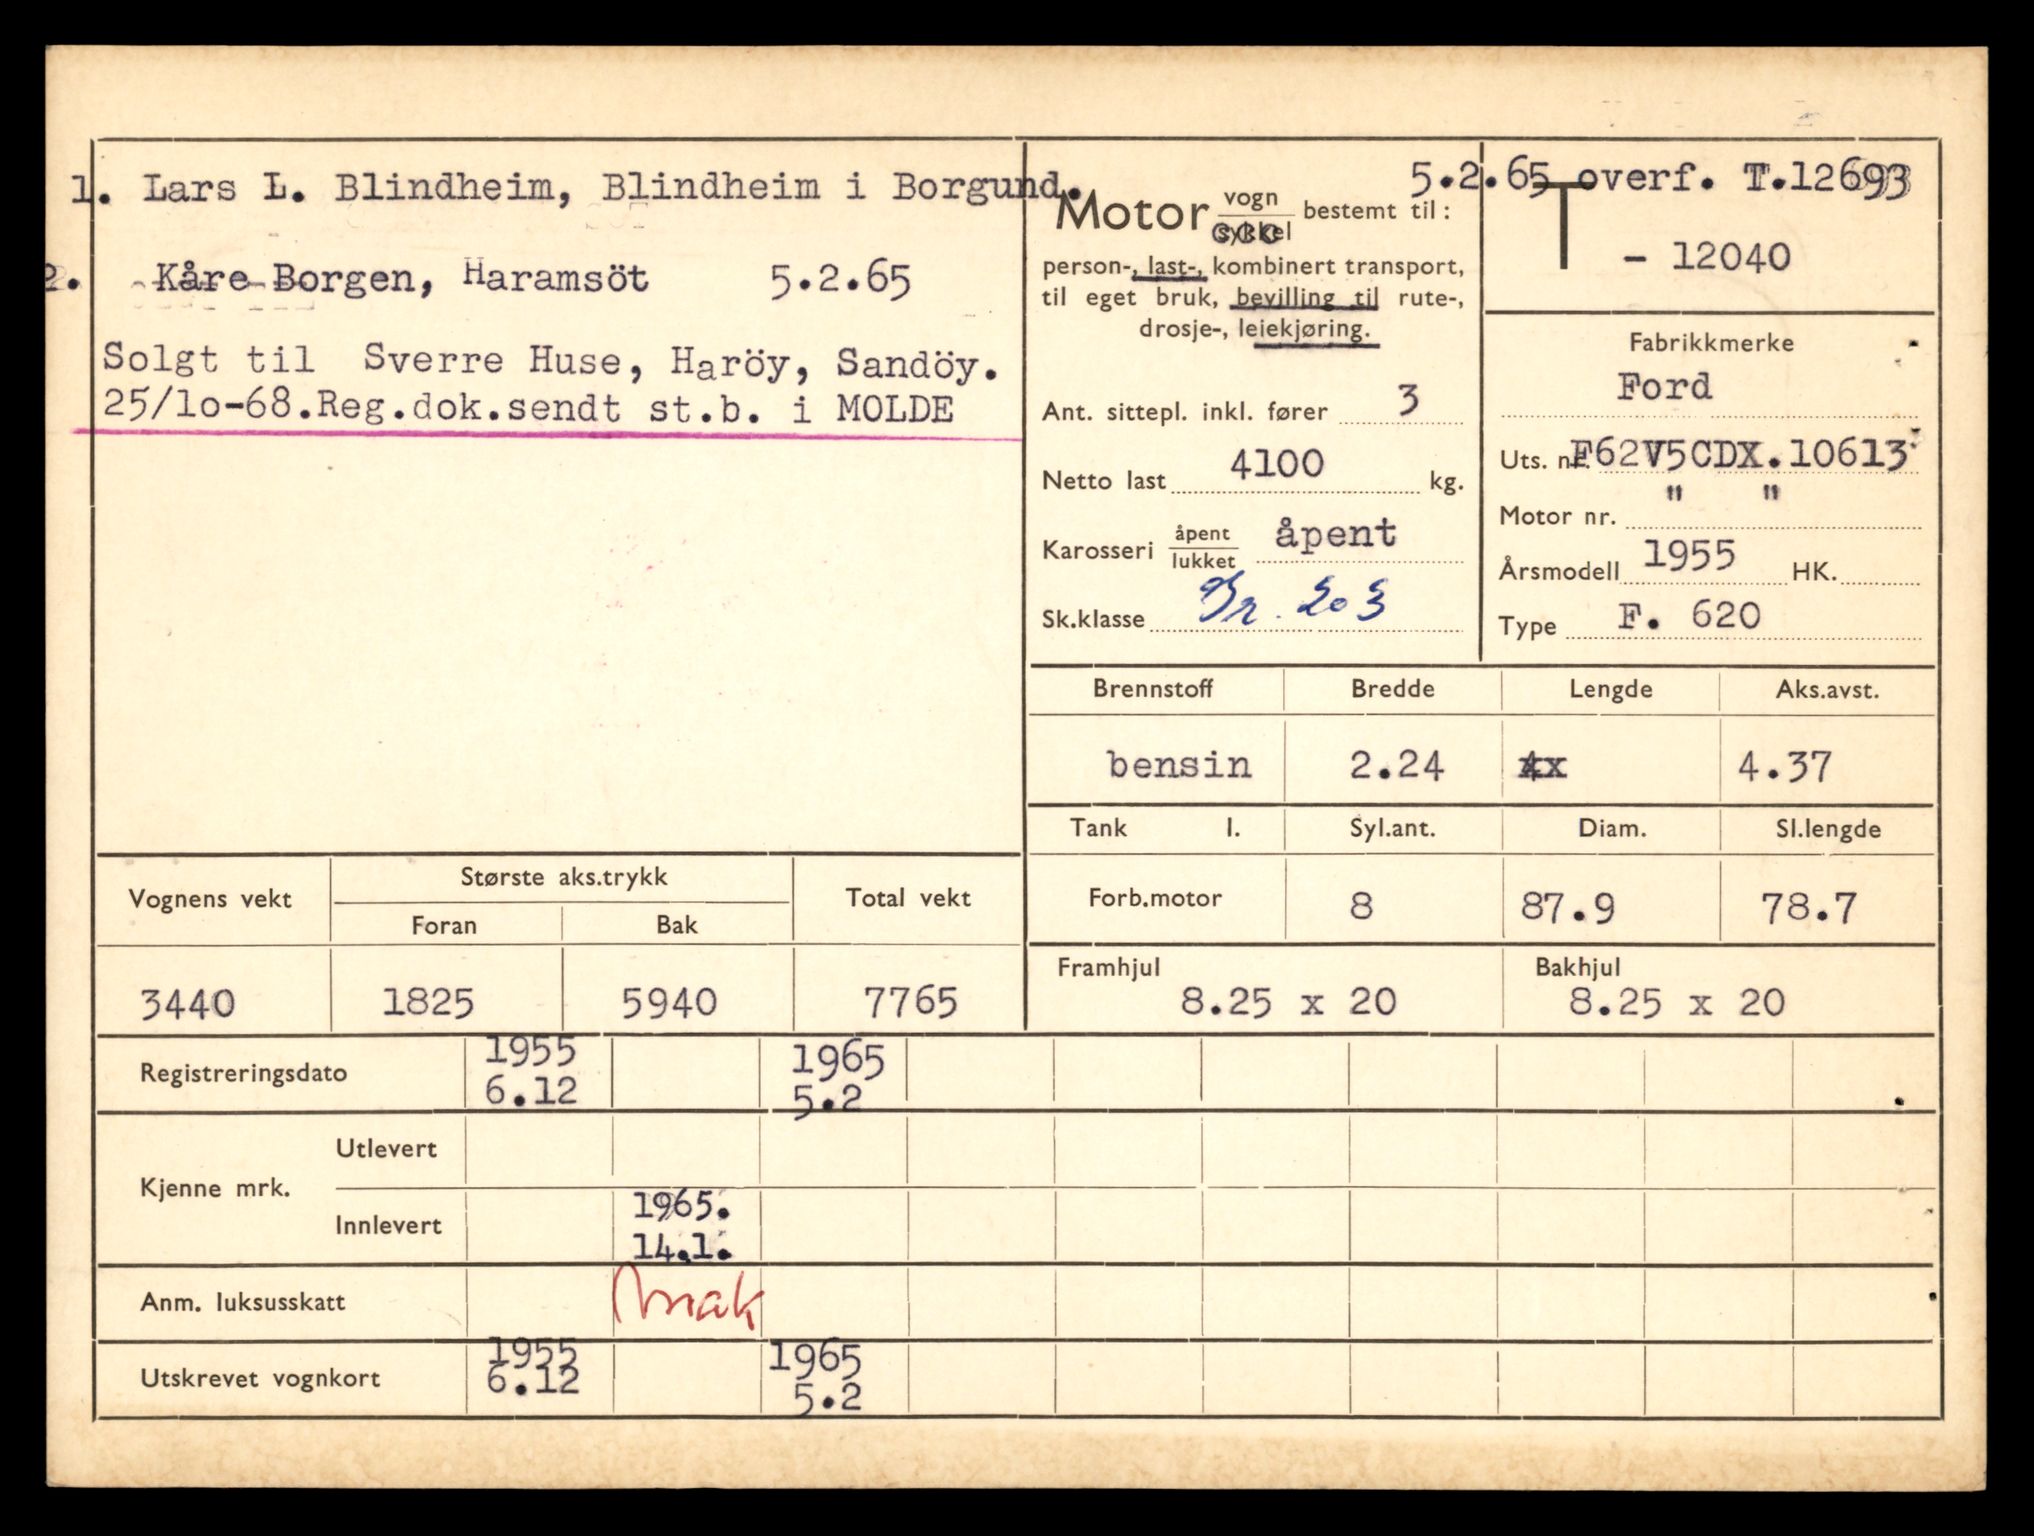 1. Lars L. Blindheim, Blindheim i Borgund.
2. Kåre Borgen, Haramsöt 5.2.65
Solgt til Sverre Huse, Haröy, Sandöy.
25/lo-68.Reg.dok.sendt st.b. i MOLDE
5.2.65 overf. T.12693
Motor vogn / sykkel bestemt til:
person-, last-, kombinert transport,
til eget bruk, bevilling til rute-,
drosje-, leiekjøring.
Ant. sittepl. inkl. fører 3
Netto last 4100 kg.
Karosseri åpent / lukket åpent
Sk.klasse 203
T - 12040
Fabrikkmerke
Ford
Uts. nr. F62V5CDX.10613
Motor nr. " "
Årsmodell 1955 HK.
Type F. 620
Brennstoff Bredde Lengde Aks.avst.
bensin 2.24 4.37
Tank l. Syl.ant. Diam. Sl.lengde
Forb.motor 8 87.9 78.7
Framhjul Bakhjul
8.25 x 20 8.25 x 20
Vognens vekt Største aks.trykk Total vekt
Foran Bak
3440 1825 5940 7765
Registreringsdato 1955 6.12 1965 5.2
Kjenne mrk. Utlevert
Innlevert 1965. 14.1.
Anm. luksusskatt
Utskrevet vognkort 1955 6.12 1965 5.2